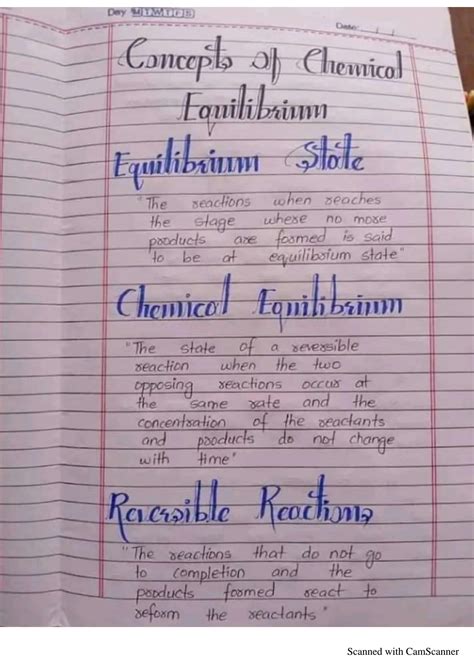 Day M T W T F S
Date: / /
Concepts of Chemical
Equilibrium
Equilibrium State
"The reactions when reaches
the stage where no more
products are formed is said
to be at equilibrium state"
Chemical Equilibrium
"The state of a reversible
reaction when the two
opposing reactions occur at
the same rate and the
concentration of the reactants
and products do not change
with time"
Reversible Reactions
"The reactions that do not go
to completion and the
products formed react to
reform the reactants"
Scanned with CamScanner